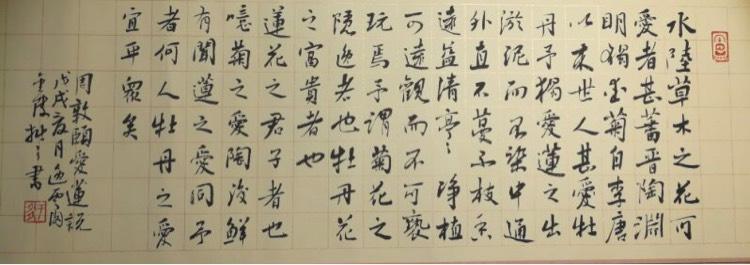 水陸草木之花可
愛者甚蕃晋陶淵
明獨愛菊自李唐
以来世人甚愛牡
丹予獨愛蓮之出
淤泥而不染中通
外直不蔓不枝香
遠益清亭〻净植
可遠觀而不可褻
玩焉予謂菊花之
隱逸者也牡丹花
之富貴者也
蓮花之君子者也
噫菊之愛陶後鮮
有聞蓮之愛同予
者何人牡丹之愛
宜乎衆矣
周敦頤愛蓮説
戊戌夏月
書